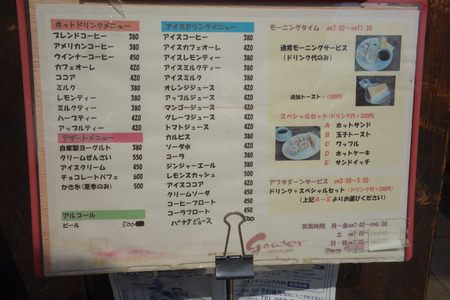 ホットドリンクメニュー
ブレンドコーヒー 380
アメリカンコーヒー 380
ウインナーコーヒー 450
カフェオーレ 420
ココア 420
ミルク 380
レモンティー 380
ミルクティー 380
ハーブティー 420
アップルティー 420
デザートメニュー
自家製ヨーグルト 380
クリームぜんざい 550
アイスクリーム 450
チョコレートパフェ 600
かき氷(夏季のみ) 450
アルコール
ビール 500
アイスドリンクメニュー
アイスコーヒー 380
アイスカフェオーレ 420
アイスレモンティー 380
アイスミルクティー 380
アイスミルク 380
オレンジジュース 420
アップルジュース 420
マンゴージュース 420
グレープジュース 420
トマトジュース 420
カルピス 380
ソーダ水 380
コーラ 380
ジンジャーエール 380
レモンスカッシュ 500
アイスココア 420
クリームソーダ 450
コーヒーフロート 450
コーラフロート 450
バナナジュース 500
モーニングタイム AM7:00~AM11:30
通常モーニングサービス
(ドリンク代のみ)
追加トースト+(100円)
スペシャルセット(ドリンク代+200円)
A ホットサンド
B 玉子トースト
C ワッフル
D ホットケーキ
E サンドイッチ
アフタヌーンサービス PM3:00~5:00
ドリンク+スペシャルセット(ドリンク代+200円)
(上記A~Eよりお選びください)
Gouter
営業時間 月~金
土
日・祝